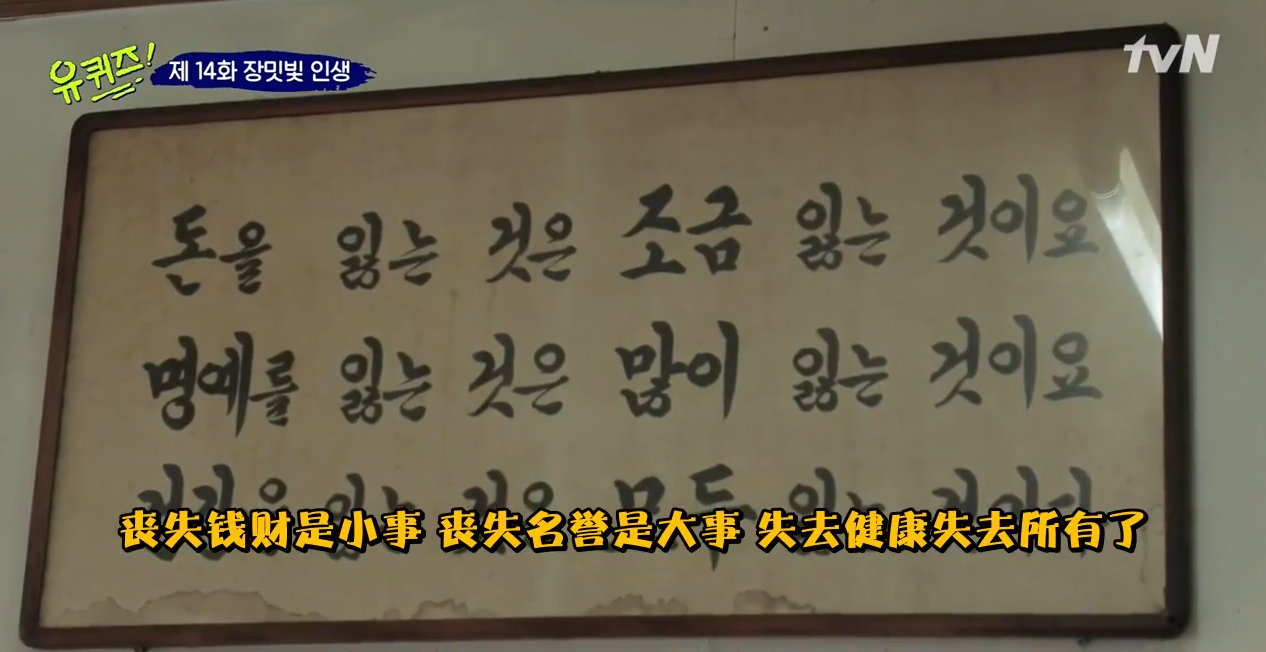 유퀴즈!
제 14화 장밋빛 인생
tvN
돈을 잃는 것은 조금 잃는 것이요
명예를 잃는 것은 많이 잃는 것이요
건강을 잃는 것은 모두 잃는 것이다
丧失钱财是小事 丧失名誉是大事 失去健康失去所有了